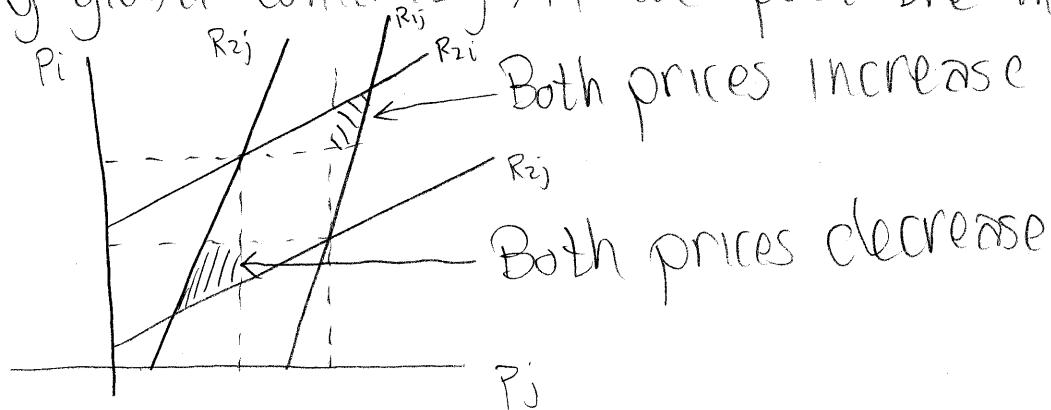 R1j
R2j
Pi
R2i
Both prices increase
R2j
Both prices decrease
Pj